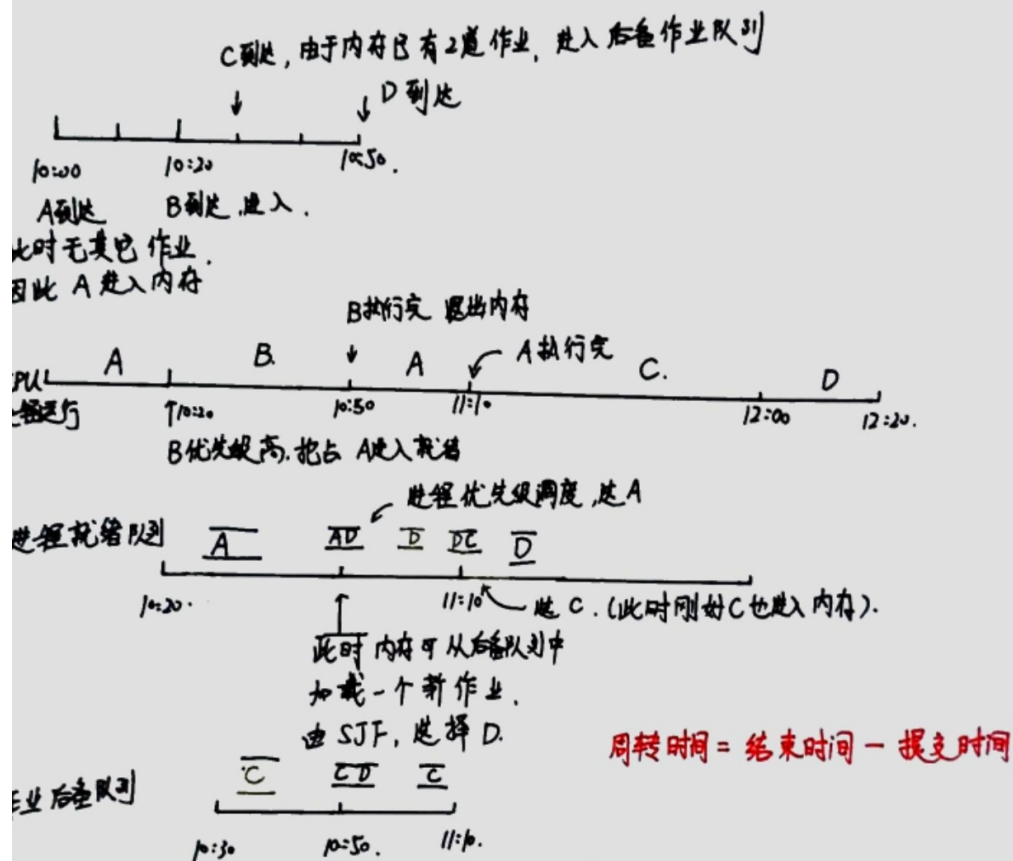 C到达，由于内存已有2道作业，进入后备作业队列
D到达
10:00 10:20 10:50.
A到达 B到达.进入.
此时无其它作业.
因此 A进入内存
B执行完 退出内存
A B. A A执行完 C. D
CPU
10:20 10:50 11:10 12:00 12:20.
B优先级高.抢占 A进入就绪
进程优先级调度,选A
进程就绪队列 A AD D DC D
10:20. 11:10 选C.(此时刚好C也进入内存).
此时内存可从后备队列中
加载一个新作业.
由SJF, 选择D.
周转时间 = 结束时间 - 提交时间
作业后备队列 C CD C
10:30 10:50. 11:10.